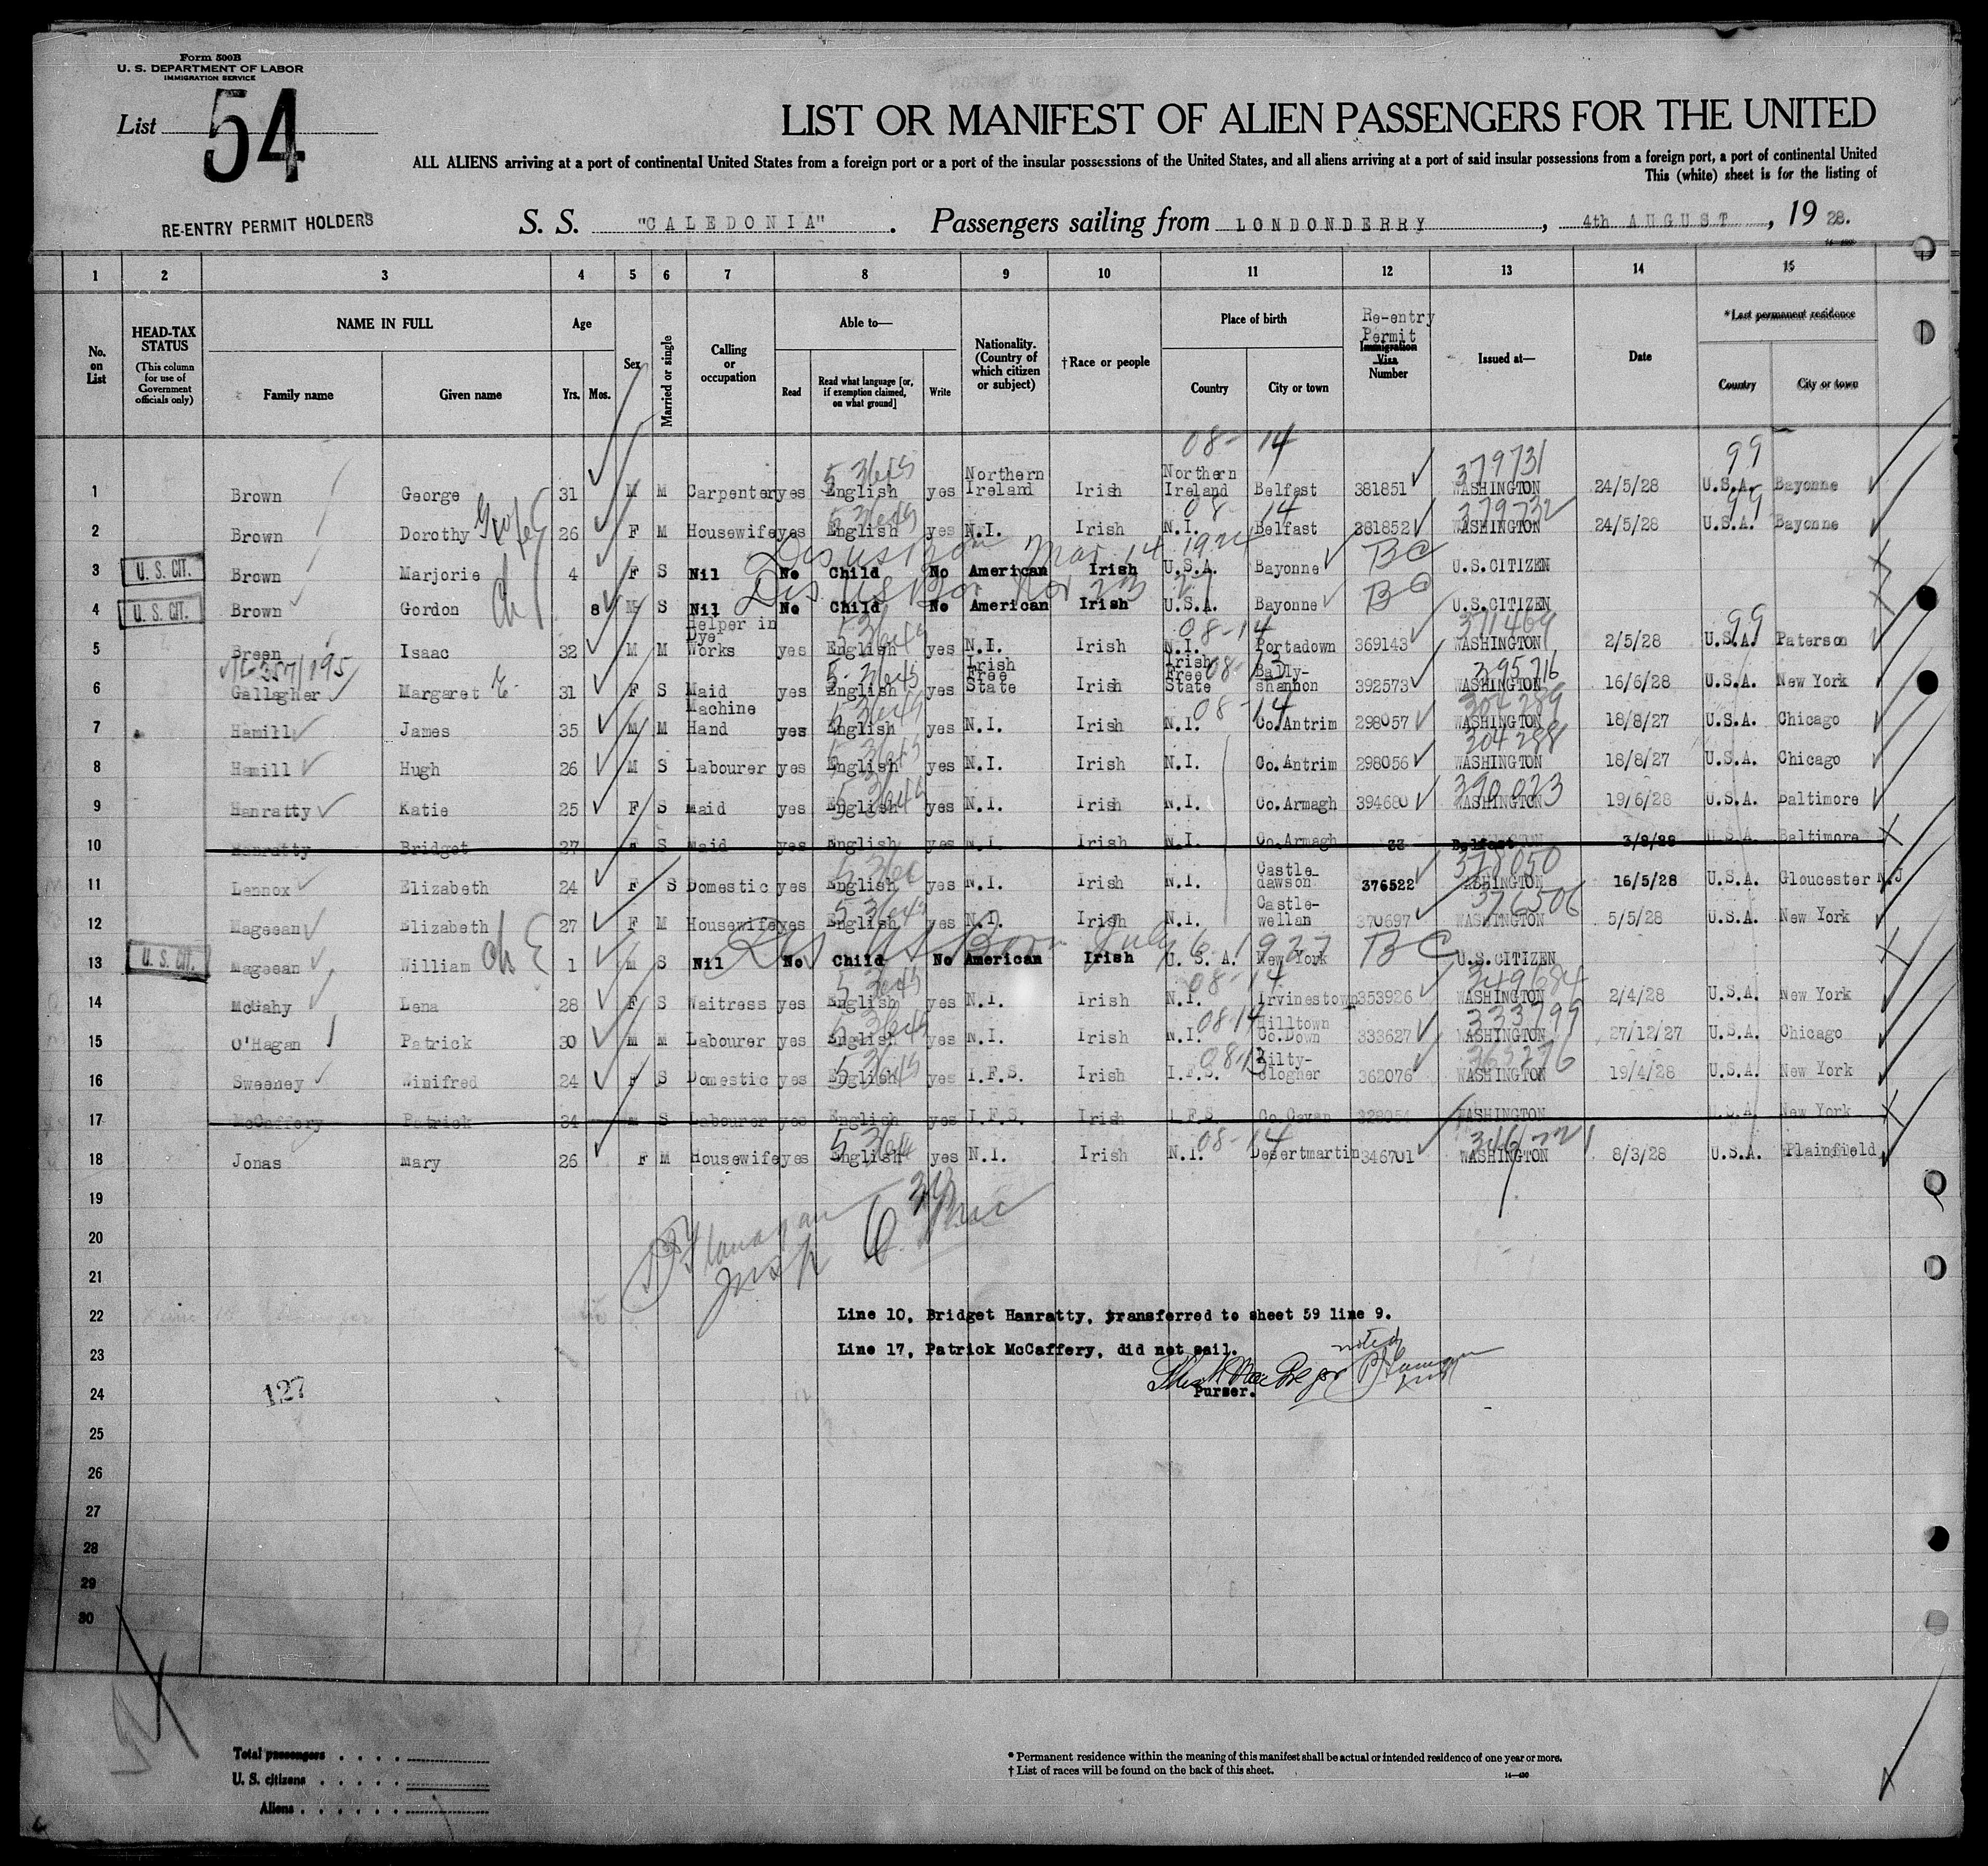 Form 500B
U. S. DEPARTMENT OF LABOR
IMMIGRATION SERVICE
List 54
LIST OR MANIFEST OF ALIEN PASSENGERS FOR THE UNITED
ALL ALIENS arriving at a port of continental United States from a foreign port or a port of the insular possessions of the United States, and all aliens arriving at a port of said insular possessions from a foreign port, a port of continental United
This (white) sheet is for the listing of
RE-ENTRY PERMIT HOLDERS
S. S. "CALEDONIA". Passengers sailing from LONDONDERRY, 4th AUGUST, 19 28.
1 2 3 4 5 6 7 8 9 10 11 12 13 14 15
No. on List
HEAD-TAX STATUS (This column for use of Government officials only)
NAME IN FULL
Family name Given name
Age
Yrs. Mos.
Sex
Married or single
Calling or occupation
Able to—
Read Read what language [or, if exemption claimed, on what ground] Write
Nationality. (Country of which citizen or subject)
†Race or people
Place of birth
Country City or town
Re-entry Permit Immigration Visa Number
Issued at—
Date
*Last permanent residence
Country City or town
08-14 379731 99
1 Brown George 31 M M Carpenter yes English yes Northern Ireland Irish Northern Ireland Belfast 381851 WASHINGTON 24/5/28 U.S.A. Bayonne
08-14 379732 99
2 Brown Dorothy 26 F M Housewife yes English yes N.I. Irish N.I. Belfast 381852 WASHINGTON 24/5/28 U.S.A. Bayonne
3 U. S. CIT. Brown Marjorie 4 F S Nil No Child No American Irish U.S.A. Bayonne BC U.S.CITIZEN
4 U. S. CIT. Brown Gordon 8 M S Nil No Child No American Irish U.S.A. Bayonne BC U.S.CITIZEN
08-14 371469 99
5 Breen Isaac 32 M M Helper in Dye Works yes English yes N.I. Irish N.I. Portadown 369143 WASHINGTON 2/5/28 U.S.A. Paterson
08-13 395716
6 Gallagher Margaret 31 F S Maid yes English yes Irish Free State Irish Irish Free State Bally-shannon 392573 WASHINGTON 16/6/28 U.S.A. New York
08-14 304289
7 Hamill James 35 M M Machine Hand yes English yes N.I. Irish N.I. Co.Antrim 298057 WASHINGTON 18/8/27 U.S.A. Chicago
304288
8 Hamill Hugh 26 M S Labourer yes English yes N.I. Irish N.I. Co.Antrim 298056 WASHINGTON 18/8/27 U.S.A. Chicago
390023
9 Hanratty Katie 25 F S Maid yes English yes N.I. Irish N.I. Co.Armagh 394680 WASHINGTON 19/6/28 U.S.A. Baltimore
10 Hanratty Bridget 27 F S Maid yes English yes N.I. Irish N.I. Co.Armagh Belfast 3/8/28 U.S.A. Baltimore
378050
11 Lennox Elizabeth 24 F S Domestic yes English yes N.I. Irish N.I. Castle-dawson 376522 WASHINGTON 16/5/28 U.S.A. Gloucester N.J
376506
12 Mageean Elizabeth 27 F M Housewife yes English yes N.I. Irish N.I. Castle-wellan 370697 WASHINGTON 5/5/28 U.S.A. New York
13 U. S. CIT. Mageean William 1 M S Nil No Child No American Irish U. S. A. New York BC U.S.CITIZEN
08-14 349684
14 McGahy Lena 28 F S Waitress yes English yes N.I. Irish N.I. Irvinestown 353926 WASHINGTON 2/4/28 U.S.A. New York
08-14 333799
15 O'Hagan Patrick 30 M M Labourer yes English yes N.I. Irish N.I. Hilltown Co.Down 333627 WASHINGTON 27/12/27 U.S.A. Chicago
08-13 363276
16 Sweeney Winifred 24 F S Domestic yes English yes I.F.S. Irish I.F.S. Kilty-clogher 362076 WASHINGTON 19/4/28 U.S.A. New York
17 McCaffery Patrick 34 M S Labourer yes English yes I.F.S. Irish I.F.S. Co.Cavan 328054 WASHINGTON U.S.A. New York
08-14
18 Jonas Mary 26 F M Housewife yes English yes N.I. Irish N.I. Desertmartin 346701 WASHINGTON 8/3/28 U.S.A. Plainfield
19
20
21
22 Line 10, Bridget Hanratty, transferred to sheet 59 line 9.
23 Line 17, Patrick McCaffery, did not sail. noted
24 127 Purser.
25
26
27
28
29
30
Total passengers
U. S. citizens
Aliens
* Permanent residence within the meaning of this manifest shall be actual or intended residence of one year or more.
† List of races will be found on the back of this sheet.